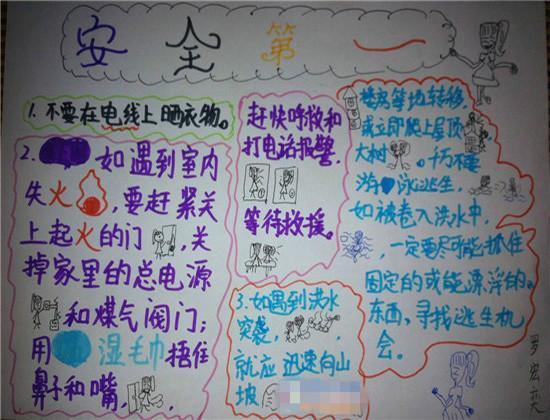 安全第一
1.不要在电线上晒衣物。
2.如遇到室内
失火,要赶紧关
上起火的门,关
掉家里的总电源
和煤气阀门;
用湿毛巾捂住
鼻子和嘴,
赶快呼救和
打电话报警,
等待救援。
3.如遇到洪水
突袭,
就应迅速向山
坡
楼房等地转移,
或立即爬上屋顶
大树。千万不要
游泳逃生,
如被卷入洪水中,
一定要尽可能抓住
固定的或能漂浮的
东西,寻找逃生机
会。